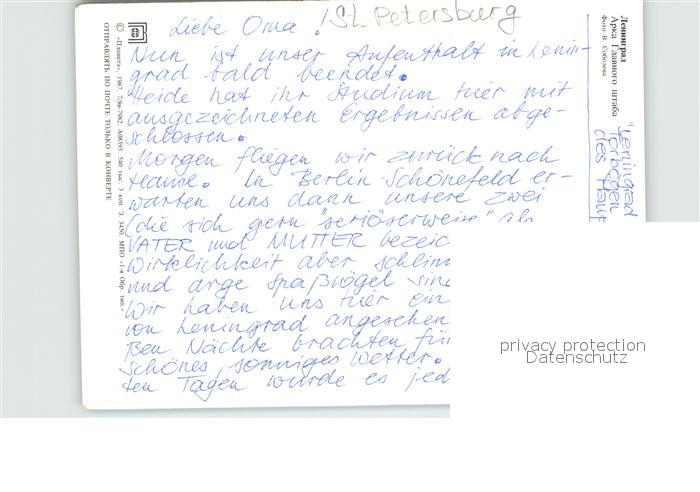 Liebe Oma! St. Petersburg
Nun ist unser Aufenthalt in Lenin-
grad bald beendet.
Heide hat ihr Studium hier mit
ausgezeichneten Ergebnissen abge-
schlossen.
Morgen fliegen wir zurück nach
Hause. In Berlin-Schönefeld er-
warten uns dann unsere zwei
(die sich gern "seriöserweise" als
VATER und MUTTER bezeic
Wirklichkeit aber schlim
und arge Spaßvögel sind
Wir haben uns hier ein
von Leningrad angesehen
ßen Nächte brachten für
schönes, sonniges Wetter.
ten Tagen wurde es jed
Ленинград
Арка Главного штаба
Фото В. Соболева
"Leningrad
Torbogen
des Haupt
© «Планета», 1987. 7/8в-7982. А08393. 540 тыс. 3 коп. З. 3450. МПО «1-я Обр. тип.»
ОТПРАВЛЯТЬ ПО ПОЧТЕ ТОЛЬКО В КОНВЕРТЕ
privacy protection
Datenschutz